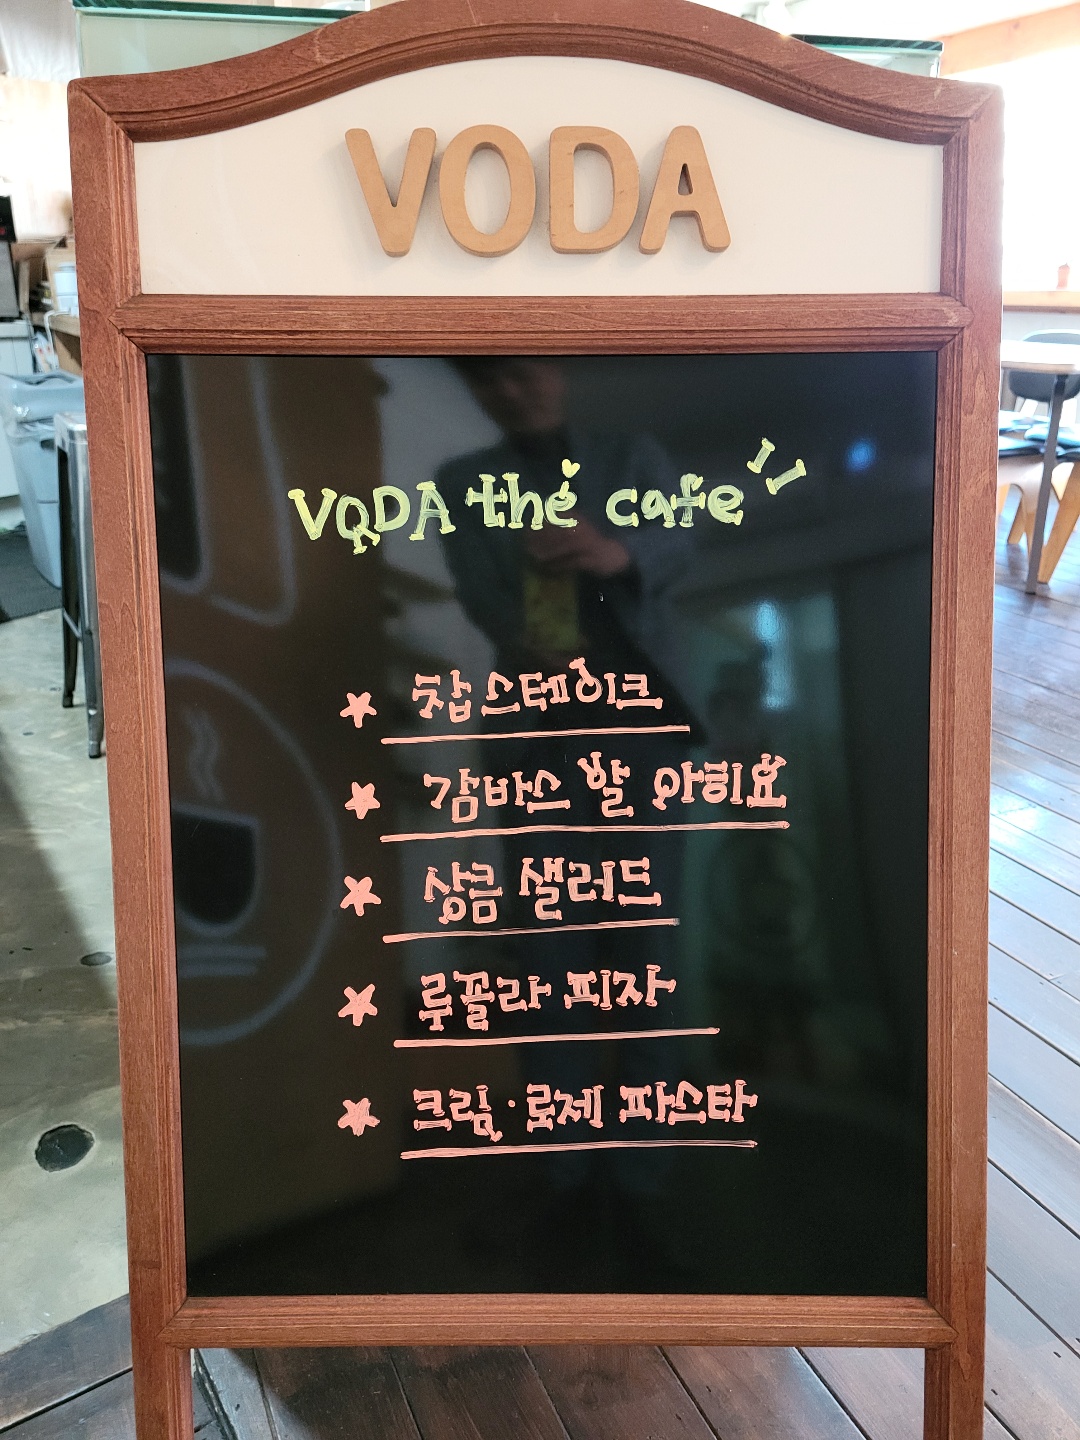 VODA
VODA the cafe
찹스테이크
감바스 알 아히요
상큼 샐러드
루꼴라 피자
크림·로제 파스타